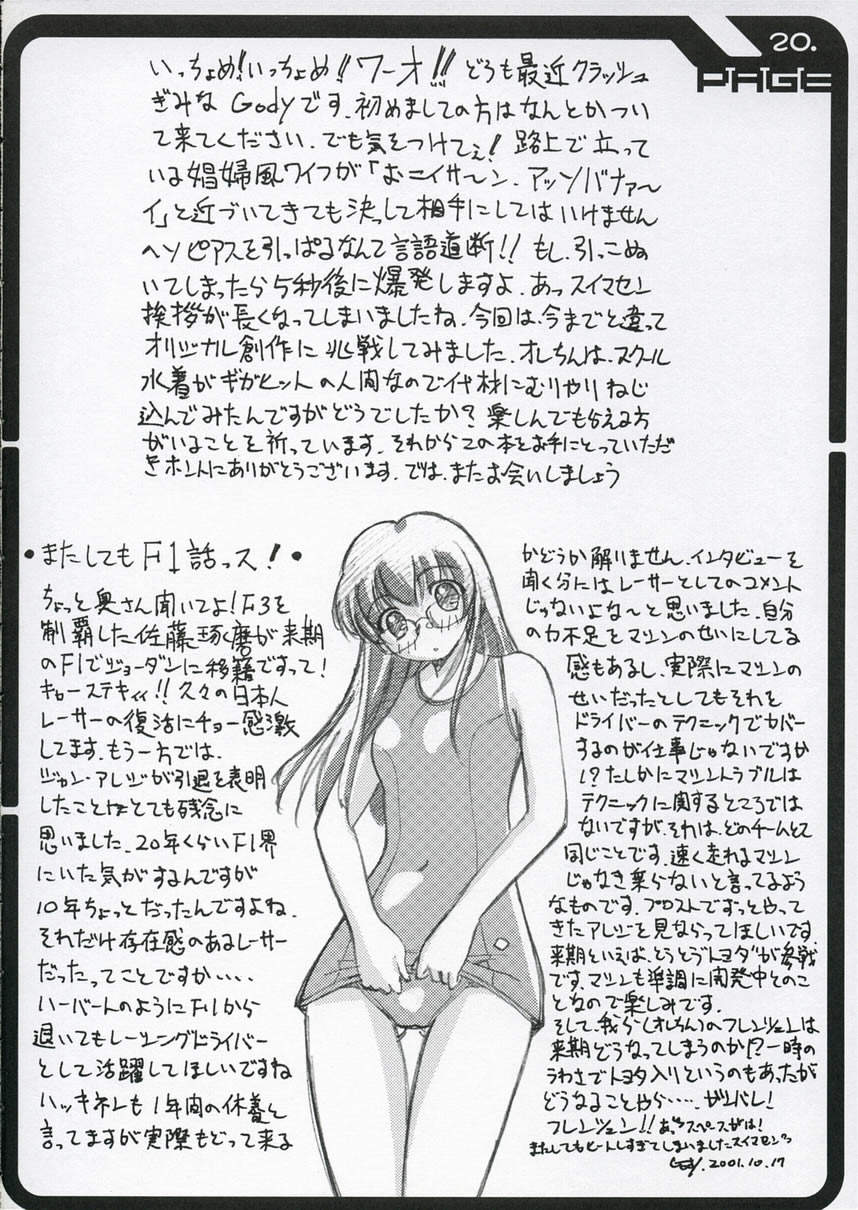 20.
PAGE
いっちょめ!いっちょめ!!ワーオ!!!どうも最近クラッシュ
ぎみなGodyです.初めましての方はなんとかつい
て来てください.でも気をつけてぇ!路上で立って
いる娼婦風ワイフが「おニイサ〜ン.アッソバナァ〜
イ」と近づいてきても決っして相手にしてはいけません
ヘソピアスを引っぱるなんて言語道断!!もし、引っこぬ
いてしまったら5秒後に爆発しますよ.あっスイマセン
挨拶が長くなってしまいましたね.今回は、今までと違って
オリジナル創作に挑戦してみました.オレちんは、スクール
水着がギガヒットの人間なので代材にむりやりねじ
込んでみたんですがどうでしたか?楽しんでもらえる方
がいることを祈っています.それからこの本をお手にとっていただ
きホントにありがとうございます.では、またお会いしましょう
・またしてもF1話っス!・
ちょっと奥さん聞いてよ!F3を
制覇した佐藤琢磨が来期
のF1でジョーダンに移籍ですって!
キャーステキィィ!!久々の日本人
レーサーの復活にチョー感激
してます.もう一方では、
ジャン・アレジが引退を表明
したことはとても残念に
思いました.20年くらいF1界
にいた気がするんですが
10年ちょっとだったんですよね.
それだけ存在感のあるレーサー
だったってことですか‥‥
ハーバートのようにF1から
退いてもレーシングドライバー
として活躍してほしいですね
ハッキネンも1年間の休養と
言ってますが実際もどって来る
かどうか解りません.インタビューを
聞く分にはレーサーとしてのコメント
じゃないよな〜と思いました.自分
の力不足をマシンのせいにしてる
感もあるし、実際にマシンの
せいだったとしてもそれを
ドライバーのテクニックでカバー
するのが仕事じゃないですか
!?たしかにマシントラブルは
テクニックに関するところでは
ないですが、それは、どのチームとて
同じことです.速く走れるマシン
じゃなき乗らないと言ってるよう
なものです.プロストでずっとやって
きたアレジを見ならってほしいです.
来期といえば、とうとうトヨタが参戦
です.マシンも準調に開発中とのこ
となので楽しみです.
そして、我ら(オレちん)のフレンツェンは
来期どうなってしまうのか!?一時の
うわさでトヨタ入りというのもあったが
どうなることやら‥‥.ガンバレ!
フレンツェン!!あ、スペースがは!
またしてもヒートしすぎてしまいましたスイマセン
Gody.2001.10.17